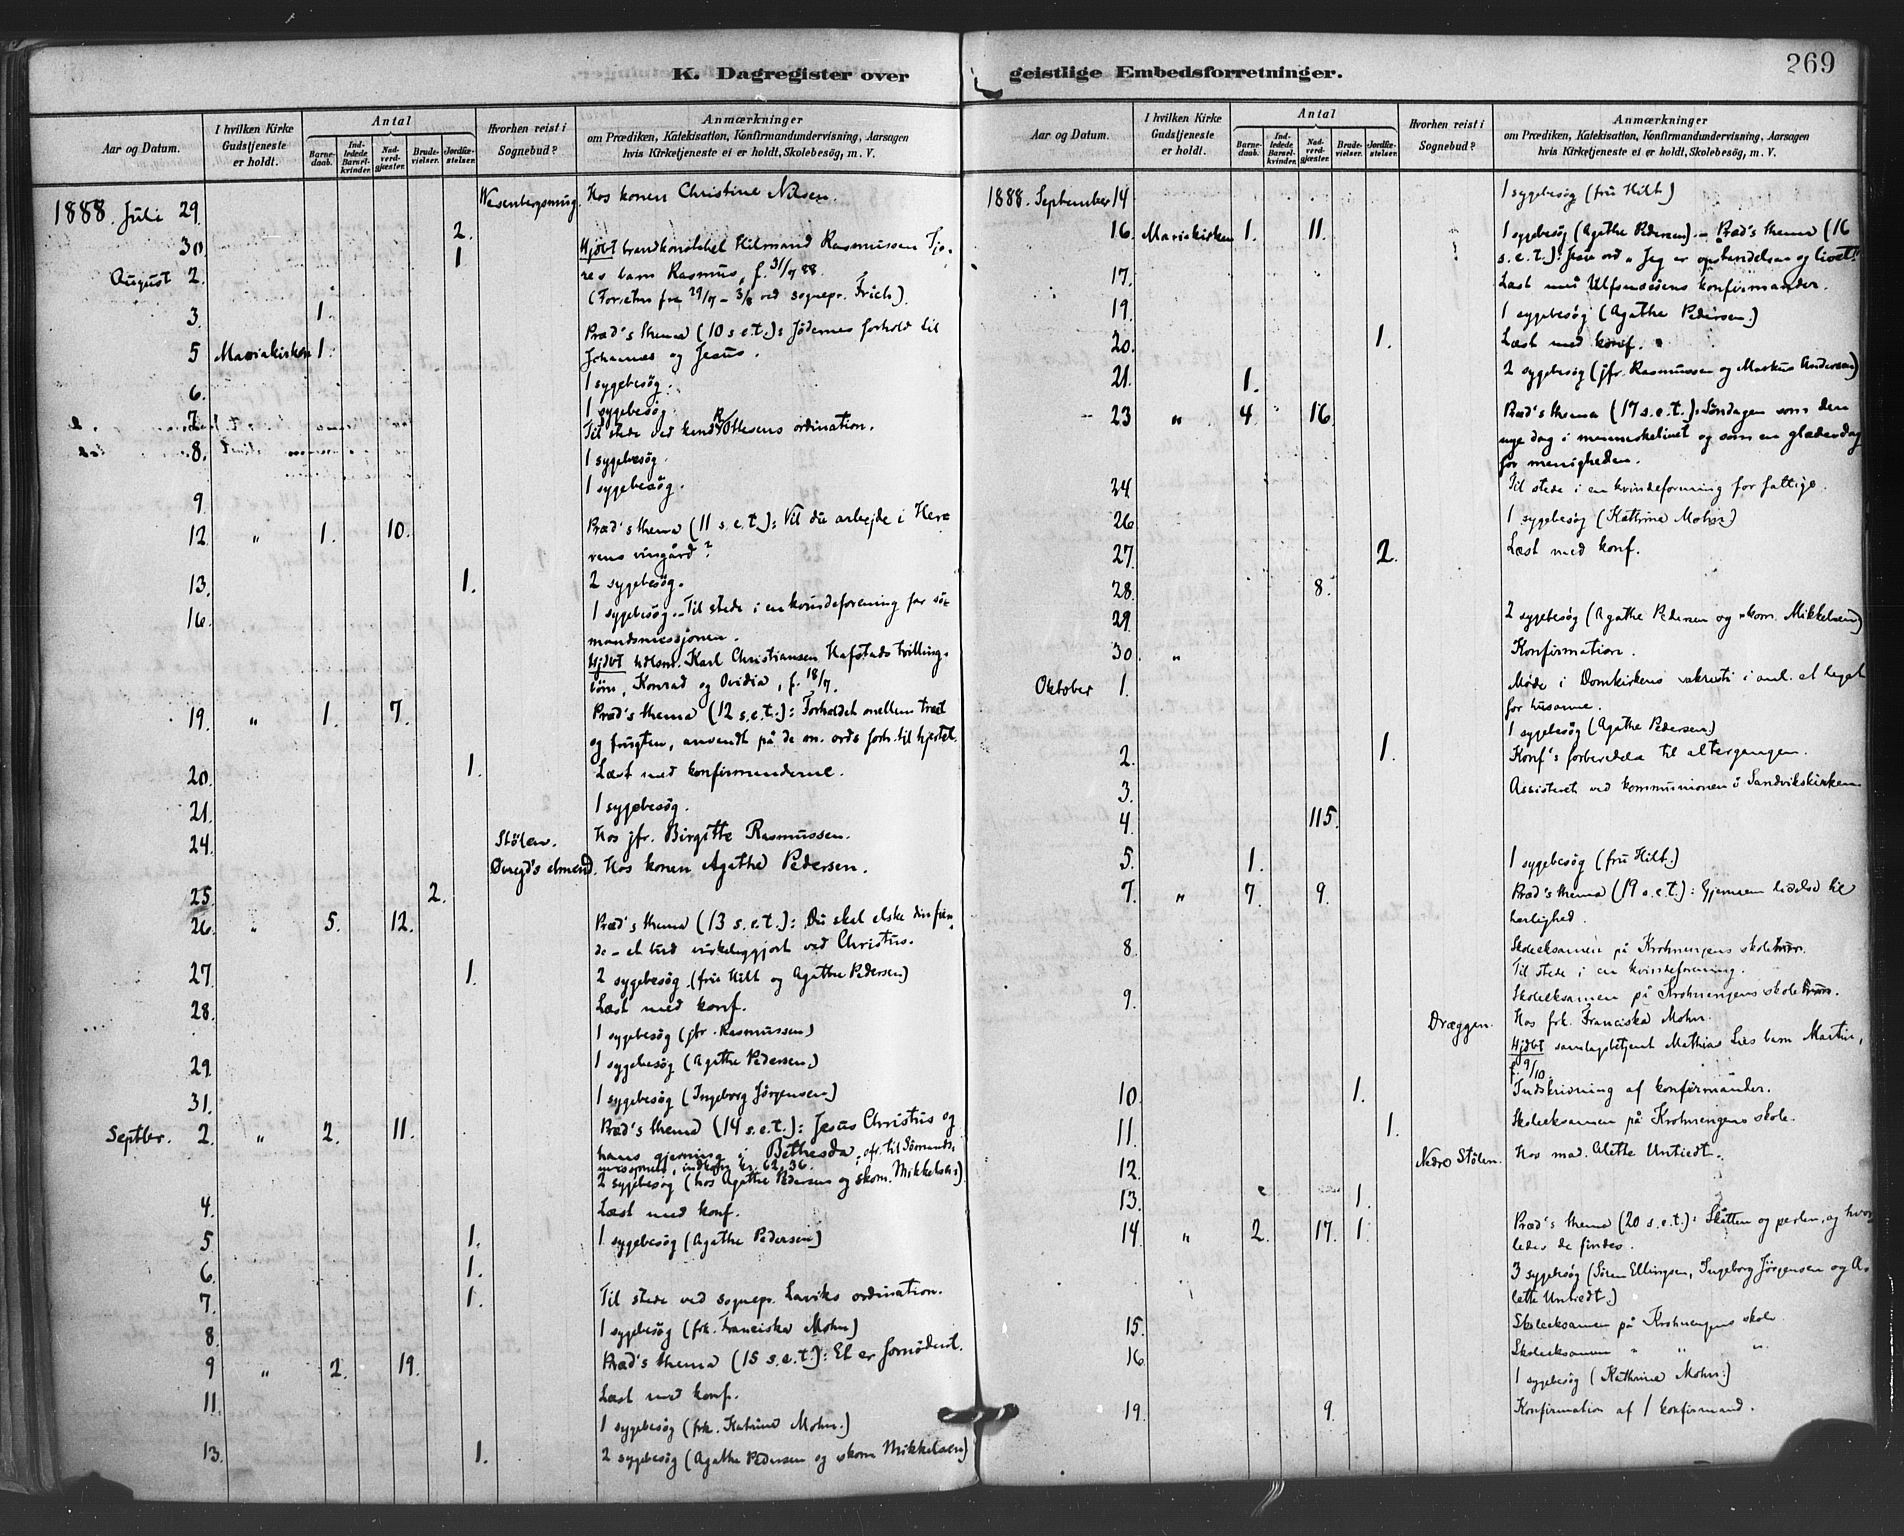 269
K. Dagregister over geistlige Embedsforretninger.
Aar og Datum.
I hvilken Kirke Gudstjeneste er holdt.
Antal
Barnedaab.
Indledede Barselkvinder.
Nadverdgjester.
Brudevielser.
Jordfæstelser.
Hvorhen reist i Sognebud?
Anmærkninger
om Prædiken, Katekisation, Konfirmandundervisning, Aarsagen
hvis Kirketjeneste ei er holdt, Skolebesøg, m. V.
1888. Juli 29. Hos konen Christine Nilsen.
30. 2.
August 2. 1. Hjdbt brandkonstabel Hilmand Rasmussen
barn Rasmus, f. 31/7 88.
(Forretn fra 29/7 - 3/8 ved sognepr. Frich).
3. 1.
5 Mariakirken 1. Præd's thema (10 s.e.t.): Jødernes forhold til
Johannes og Jesus.
6. 1 sygebesøg.
7. 1 sygebesøg.
Til stede ved kand. Ottesens ordination.
8. 1 sygebesøg.
9 1 sygebesøg.
12. " 1. 10. Præd's thema (11 s.e.t.): Vil du arbejde i Her-
rens vingård?
13. 1. 2 sygebesøg.
16. 1 sygebesøg. Til stede i en kvindeforening for sø-
mandsmissjonen.
Hjdbt Karl Christiansen Hafstads tvilling-
børn, Konrad og Ovidia, f. 18/7.
19. " 1. 7. Præd's thema (12 s.e.t.): Forholdet mellem træet
og frugten, anvendt på de m. ords forh. til hjertet.
20. 1. Læst med konfirmanderne.
21. 1 sygebesøg.
24. Stølen. Hos jfr. Birgitte Rasmussen.
Øvregd's almend. Hos konen Agathe Pedersen.
25. 2.
26. " 5. 12. Præd's thema (13 s.e.t.): Du skal elske din fien-
de - et bud virkeliggjort ved Christus.
27. 1. 2 sygebesøg. (fru Hilt og Agathe Pedersen)
28. Læst med konf.
1 sygebesøg (jfr. Rasmussen)
29. 1 sygebesøg (Agathe Pedersen)
31. 1 sygebesøg (Ingeborg Jørgensen)
Septbr. 2. " 2. 11. Præd's thema (14 s.e.t.): Jesus Christus og
hans gjerning i Bethesda, ofr. til Sømands-
missjonen, indkom kr. 62,36.
2 sygebesøg (hos Agathe Pedersen og skom. Mikkelsen)
4. Læst med konf.
5 1. 1 sygebesøg (Agathe Pedersen)
6. 1.
7. 1. Til stede ved sognepr. Laviks ordination.
8. 1 sygebesøg (frk. Franciska Mohn)
9 " 2. 19. Præd's thema (15 s.e.t.): Et er fornødent.
11. Læst med konf.
1 sygebesøg (frk. Katrine Mohn.)
13. 1. 2 sygebesøg (Agathe Pedersen og skom. Mikkelsen)
Aar og Datum.
I hvilken Kirke Gudstjeneste er holdt.
Antal
Barnedaab.
Indledede Barselkvinder.
Nadverdgjester.
Brudevielser.
Jordfæstelser.
Hvorhen reist i Sognebud?
Anmærkninger
om Prædiken, Katekisation, Konfirmandundervisning, Aarsagen
hvis Kirketjeneste ei er holdt, Skolebesøg, m. V.
1888. September 14 1 sygebesøg (fru Hilt)
16. Mariakirken 1. 11. 1 sygebesøg (Agathe Pedersen). - Præd's thema (16
s.e.t.): Jesu ord „Jeg er opstandelsen og livet."
17. Læst med konfirmander.
19. 1 sygebesøg (Agathe Pedersen.)
20. 1. Læst med konf.
21. 1. 2 sygebesøg (jfr. Rasmussen og Markus Andersen)
23 " 4. 16. Præd's thema (17 s.e.t.): Søndagen som den
nye dag i menneskelivet og som en glædesdag
for menigheden.
24 Til stede i en kvindeforening for fattige.
26 1 sygebesøg (Kathrine Mohn)
27. 2. Læst med konf.
28. 8.
29. 2 sygebesøg (Agathe Pedersen og skom. Mikkelsen)
30. " Konfirmation.
Oktober 1. Møde i Domkirkens sakristi i anl. af legat
for husarme.
1 sygebesøg (Agathe Pedersen)
2. 1. Konf's forberedelse til altergangen.
3. Assisteret ved kommunionen i Sandvikskirken
4. 115.
5. 1. 1 sygebesøg (fru Hilt.)
7. " 7. 9. Præd's thema (19 s.e.t.): Gjennem lidelse til
herlighed.
8. Skoleeksamen på Krohnengens skole
Til stede i en kvindeforening.
9. Skoleeksamen på Krohnengens skole
Dræggen. Hos frk. Franciska Mohn.
Hjdbt Mathias Lies barn Martin,
f. 9/10.
10. 1. Indskrivning af konfirmander.
11. 1. Skoleeksamen på Krohnengens skole.
12. Nedre Stølen. Hos mad. Alette Untiedt.
13. 1.
14. " 2. 17. 1. Præd's thema (20 s.e.t.): Skatten og perlen, og hvor-
ledes de findes.
3 sygebesøg (Søren Ellingsen, Ingeborg Jørgensen og A-
lette Untiedt.)
15. Skoleeksamen på Krohnengens skole
16. Skoleeksamen " " "
1 sygebesøg (Kathrine Mohn.)
19. 9. Konfirmation af 1 konfirmand.